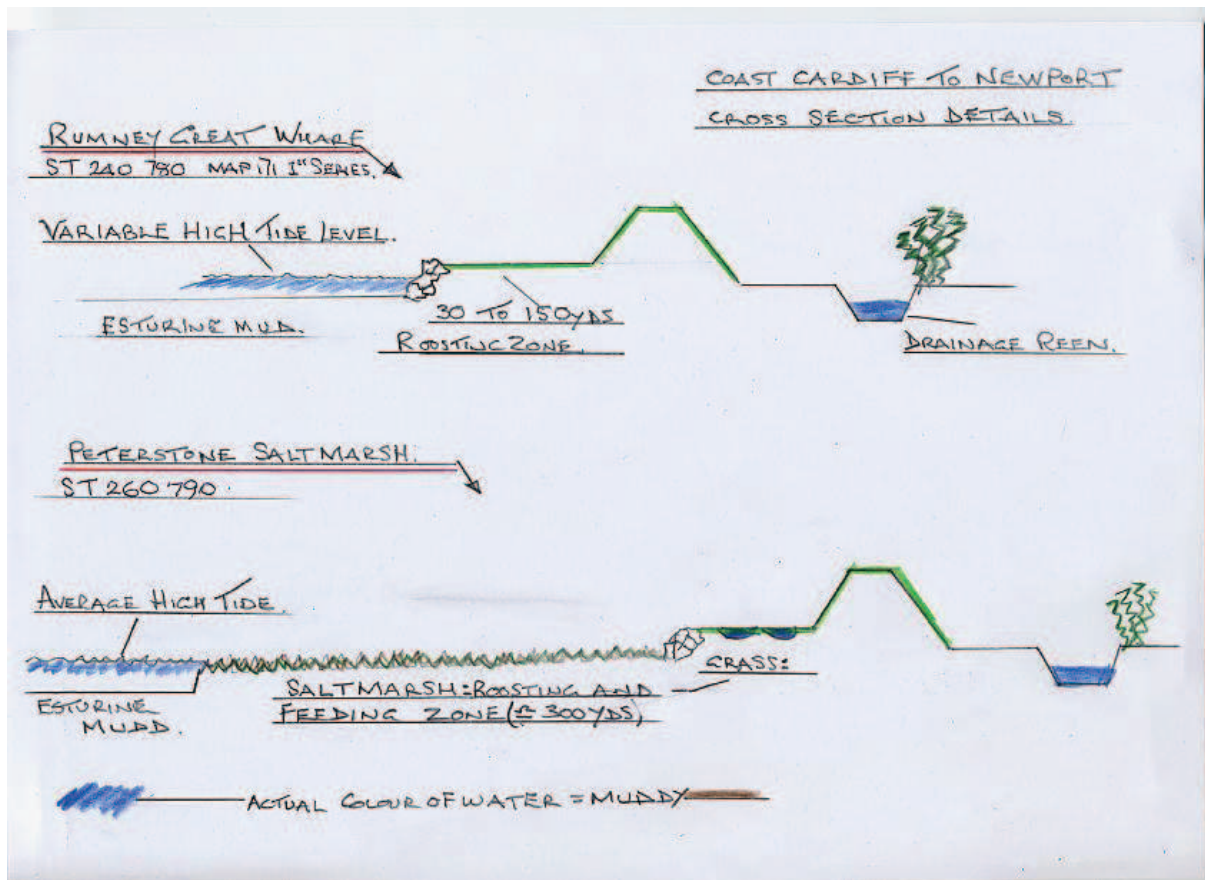 COAST CARDIFF TO NEWPORT
CROSS SECTION DETAILS.
RUMNEY GREAT WHARF
ST 240 780 MAP 171 1" SERIES.
VARIABLE HIGH TIDE LEVEL.
ESTURINE MUD.
30 TO 150 YDS
ROOSTING ZONE.
DRAINAGE REEN.
PETERSTONE SALTMARSH.
ST 260 790.
AVERAGE HIGH TIDE.
ESTURINE
MUDD.
SALTMARSH = ROOSTING AND
FEEDING ZONE (≏ 300 YDS)
GRASS =
ACTUAL COLOUR OF WATER = MUDDY